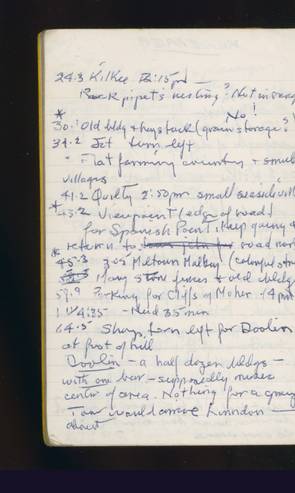 24.3 Kilkee 12:15pm —
Rock pipets nesting? Not in way
No!
* 30. Old bldg + haystack (grain storage?)
34.2 Jct turn left
" Flat farming country + small
villages
41.2 Quilty 2:50pm small seaside vill
* 43.2 Viewpoint (edge of road)
for Spanish Point. Keep going +
return to road nor
* 45.3 3:05 Miltown Malbay (colorful stre
Many stone fences + old bldgs
59.9 Pking for Cliffs of Moher (4 pm
Lv 4:35 — Need 35 min
64.5 Sharp turn left for Doolin
at foot of hill
Doolin — a half dozen bldgs —
with one bar — supposedly music
center of area. Nothing for a group
Tour would arrive
about